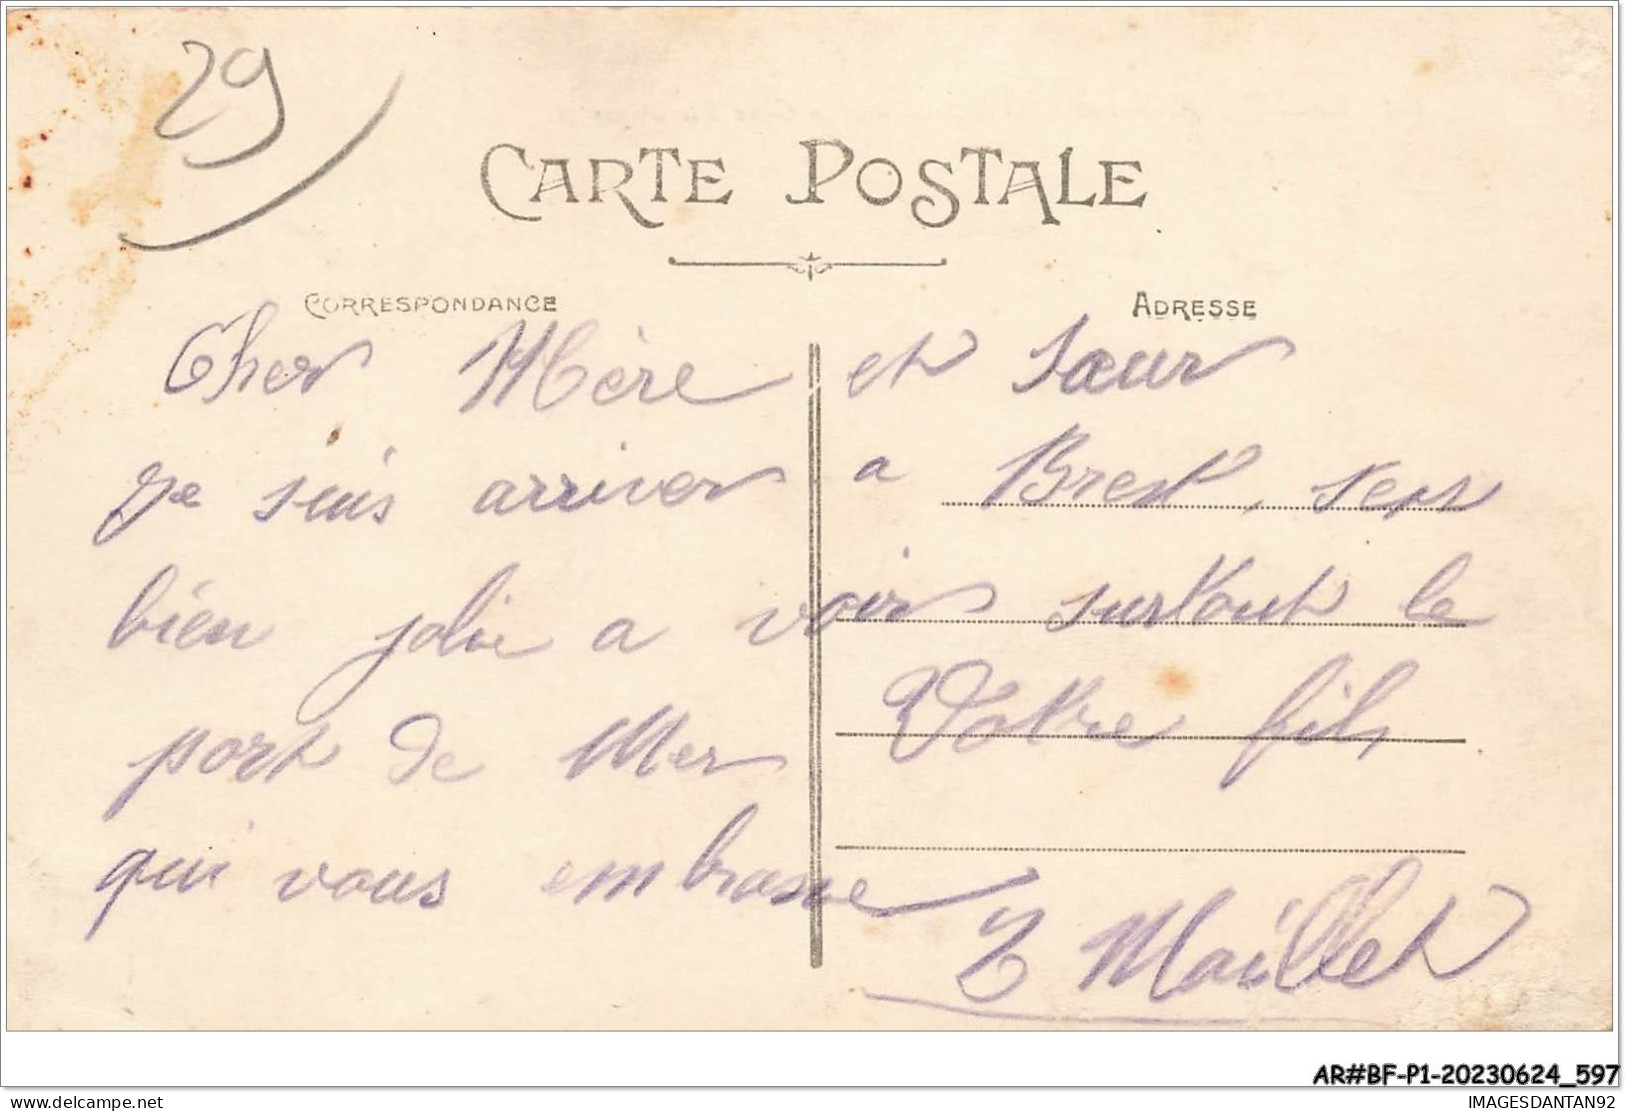 29
CARTE POSTALE
CORRESPONDANCE
ADRESSE
Cher Mère et sœur
Je suis arriver a Brest, ses
bien jolie a voir surtout le
port de Mer Votre fils
qui vous embrasse
Maillet
AR#BF-P1-20230624_597
IMAGESDANTAN92
delcampe.net